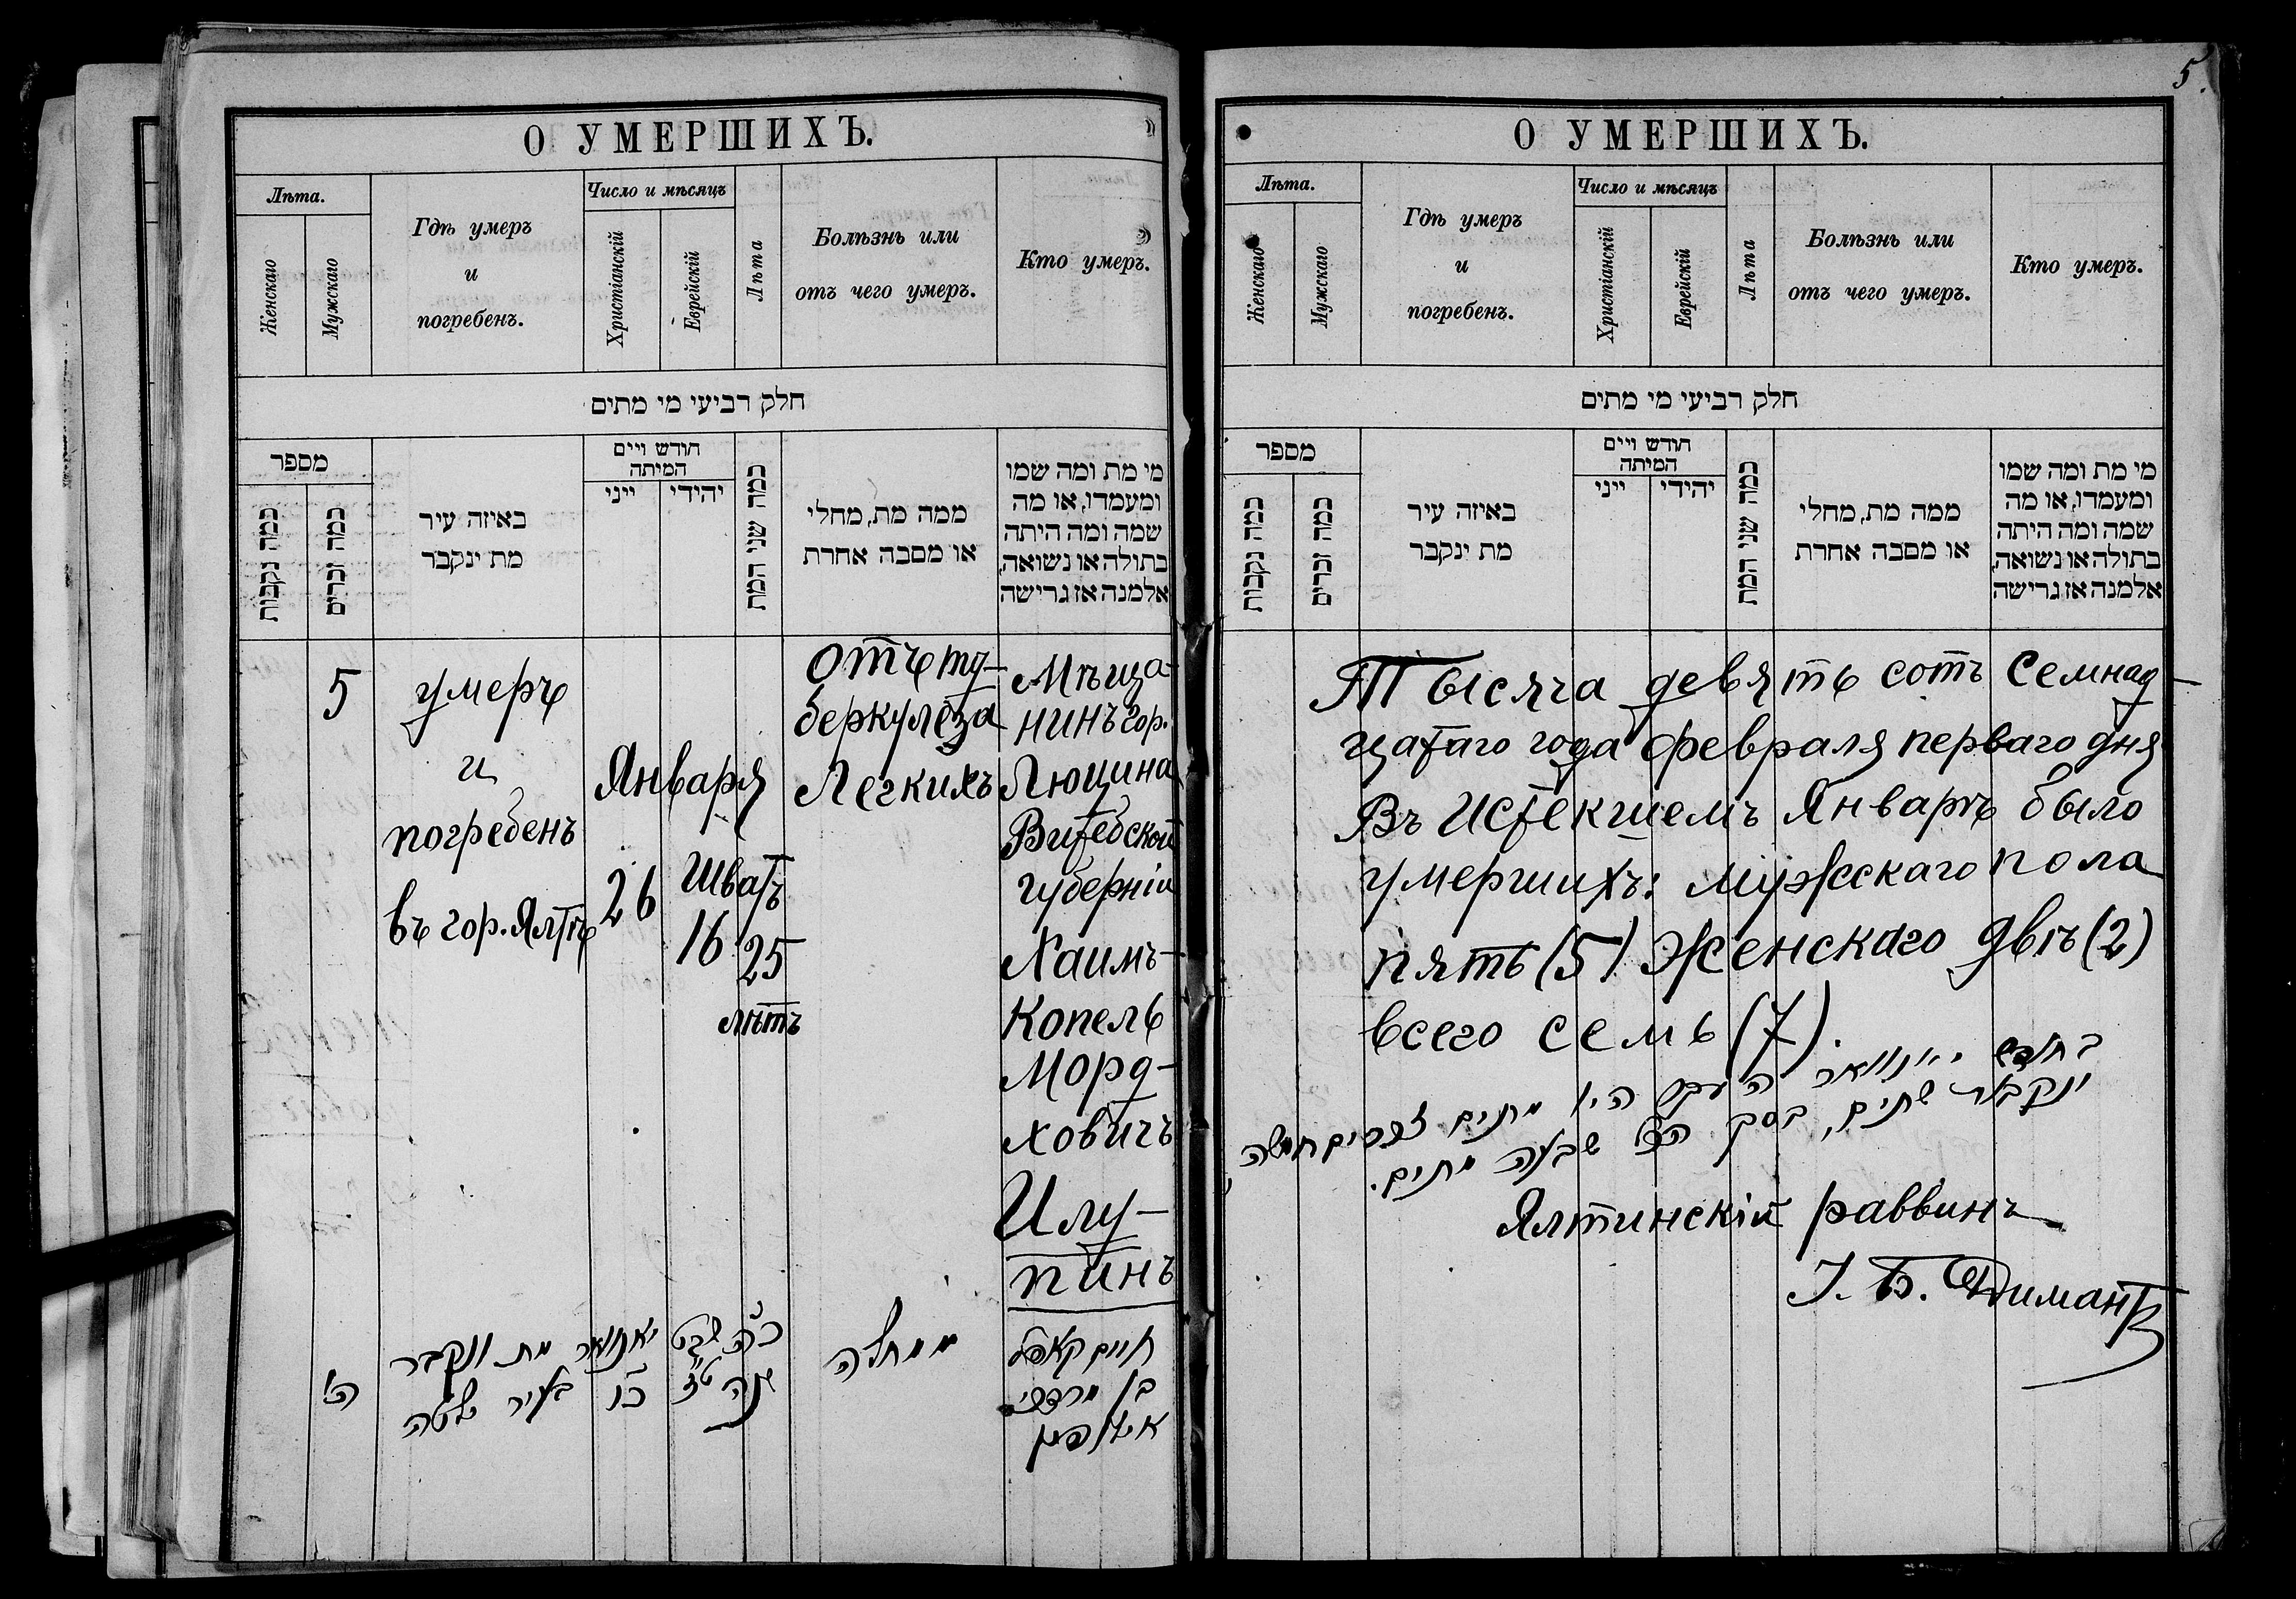 О УМЕРШИХЪ.
Лѣта.
Женскаго
Мужскаго
Гдѣ умеръ
и
погребенъ.
Число и мѣсяцъ
Христіанскій
Еврейскій
Лѣта
Болѣзнь или
отъ чего умеръ.
Кто умеръ.
חלק רביעי מי מתים
מספר
כמה נקבות
כמה זכרים
באיזה עיר
מת ינקבר
חודש ויים
המיתה
ייני
יהודי
כמה שני המת
ממה מת, מחלי
או מסבה אחרת
מי מת ומה שמו
ומעמדו, או מה
שמה ומה היתה
בתולה או נשואה,
אלמנה אז גרישה
5
умеръ
и
погребенъ
въ гор. Ялтѣ
Января
26
Шватъ
16
25
лѣтъ
Отъ ту-
беркулеза
Легкихъ
Мѣща-
нинъ гор.
Люцина
Витебской
губерніи
Хаимъ-
Копель
Морд-
ховичъ
Илу-
пинъ
ה'
יאנואר מת ונקבר
כ"ו בעיר יאלטה
כ"ה שבט
שנה ט"ז
ממחלה
חיים קאפל
בן מרדכי
5.
О УМЕРШИХЪ.
Лѣта.
Женскаго
Мужскаго
Гдѣ умеръ
и
погребенъ.
Число и мѣсяцъ
Христіанскій
Еврейскій
Лѣта
Болѣзнь или
отъ чего умеръ.
Кто умеръ.
חלק רביעי מי מתים
מספר
כמה נקבות
כמה זכרים
באיזה עיר
מת ינקבר
חודש ויים
המיתה
ייני
יהודי
כמה שני המת
ממה מת, מחלי
או מסבה אחרת
מי מת ומה שמו
ומעמדו, או מה
שמה ומה היתה
בתולה או נשואה,
אלמנה אז גרישה
Тысяча девять сотъ семнад-
цатаго года февраля перваго дня
Въ истекшемъ Январѣ было
умершихъ: мужскаго пола
пять (5) женскаго двѣ (2)
всего семь (7).
בחודש יאנואר היו מתים זכרים חמשה
ונקבות שתים, בסך הכל שבעה מתים.
Ялтинскій раввинъ
І. Б. Димантъ